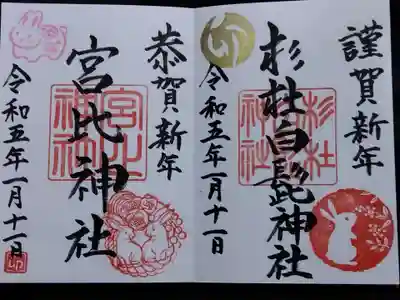 謹賀新年
杉杜白髭神社
杉杜
神社
卯
令和五年一月十一日
恭賀新年
宮比神社
宮比
神社
令和五年一月十一日
卯